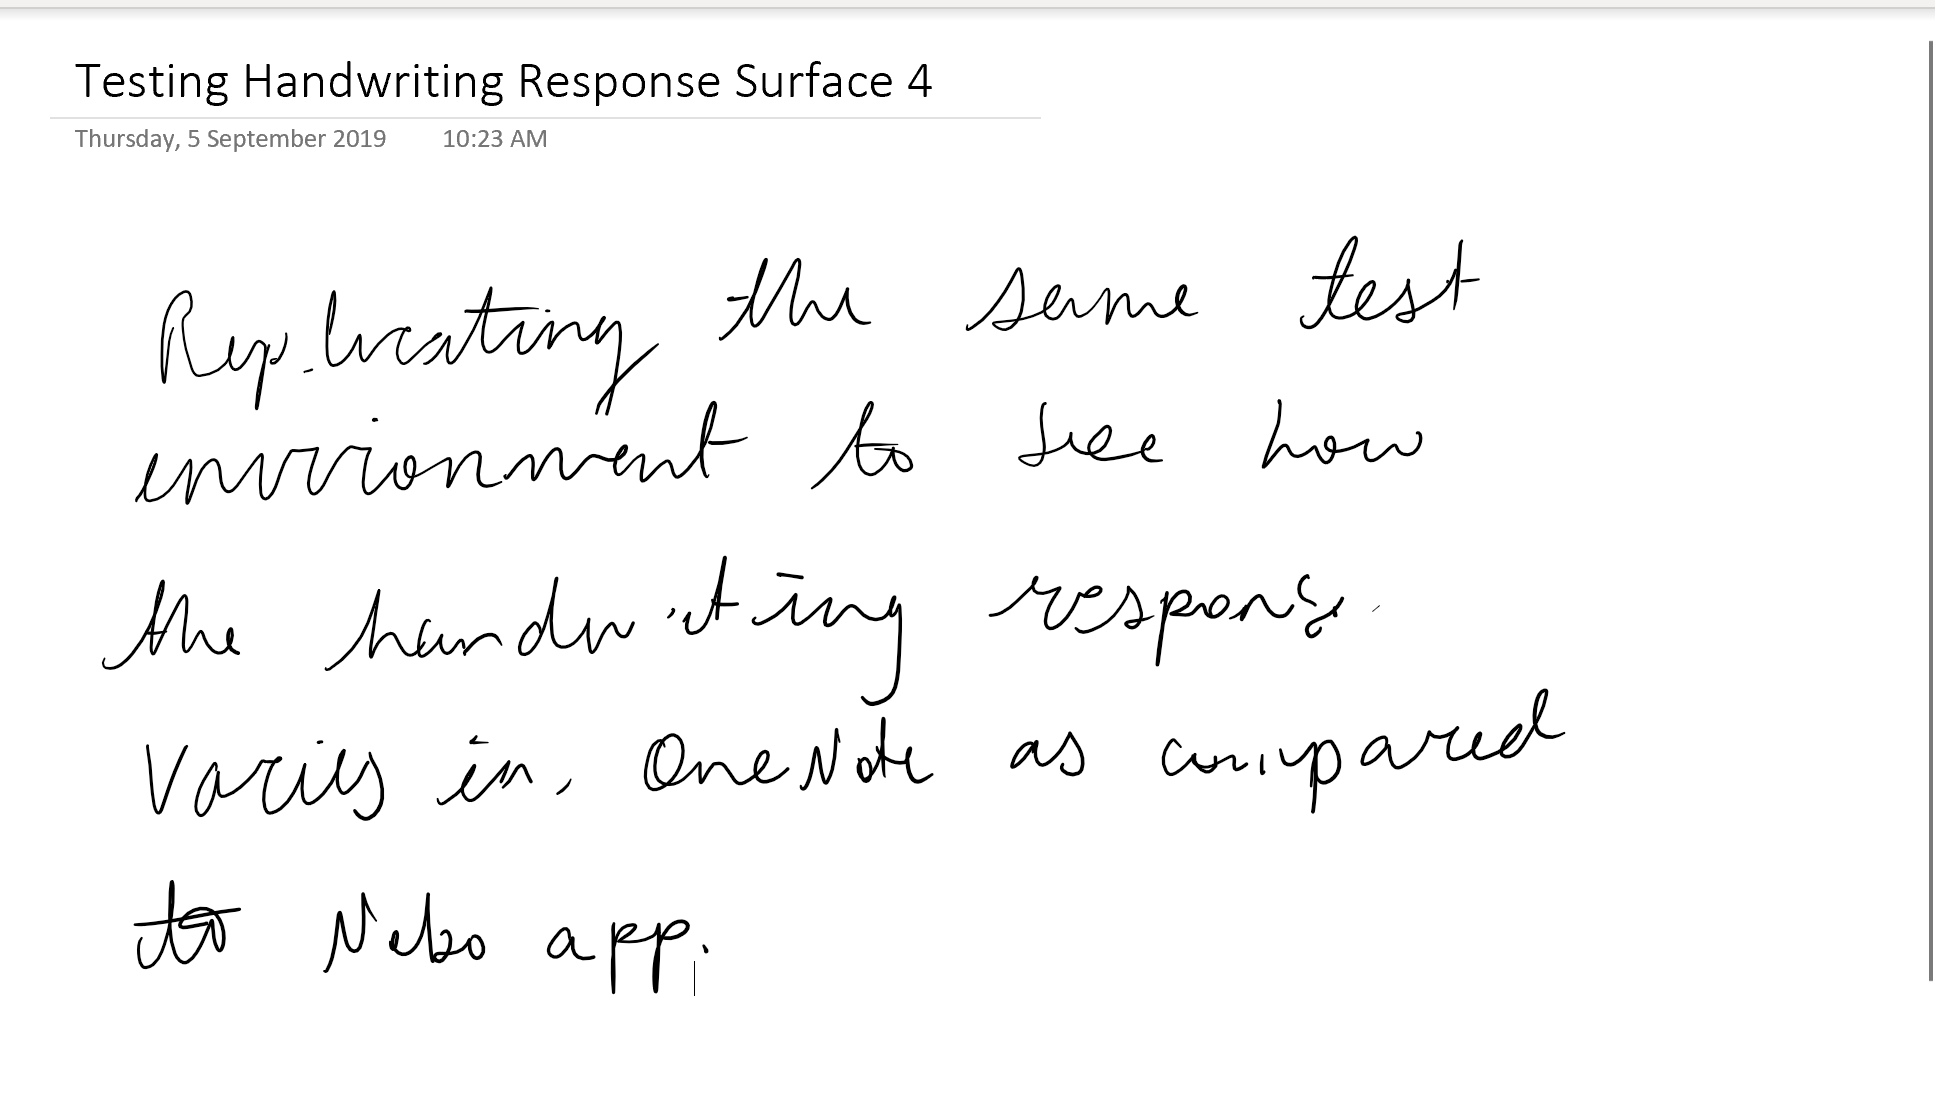 Testing Handwriting Response Surface 4
Thursday, 5 September 2019 10:23 AM
Replicating the same test
environment to see how
the handwriting response
varies in OneNote as compared
to Nebo app.